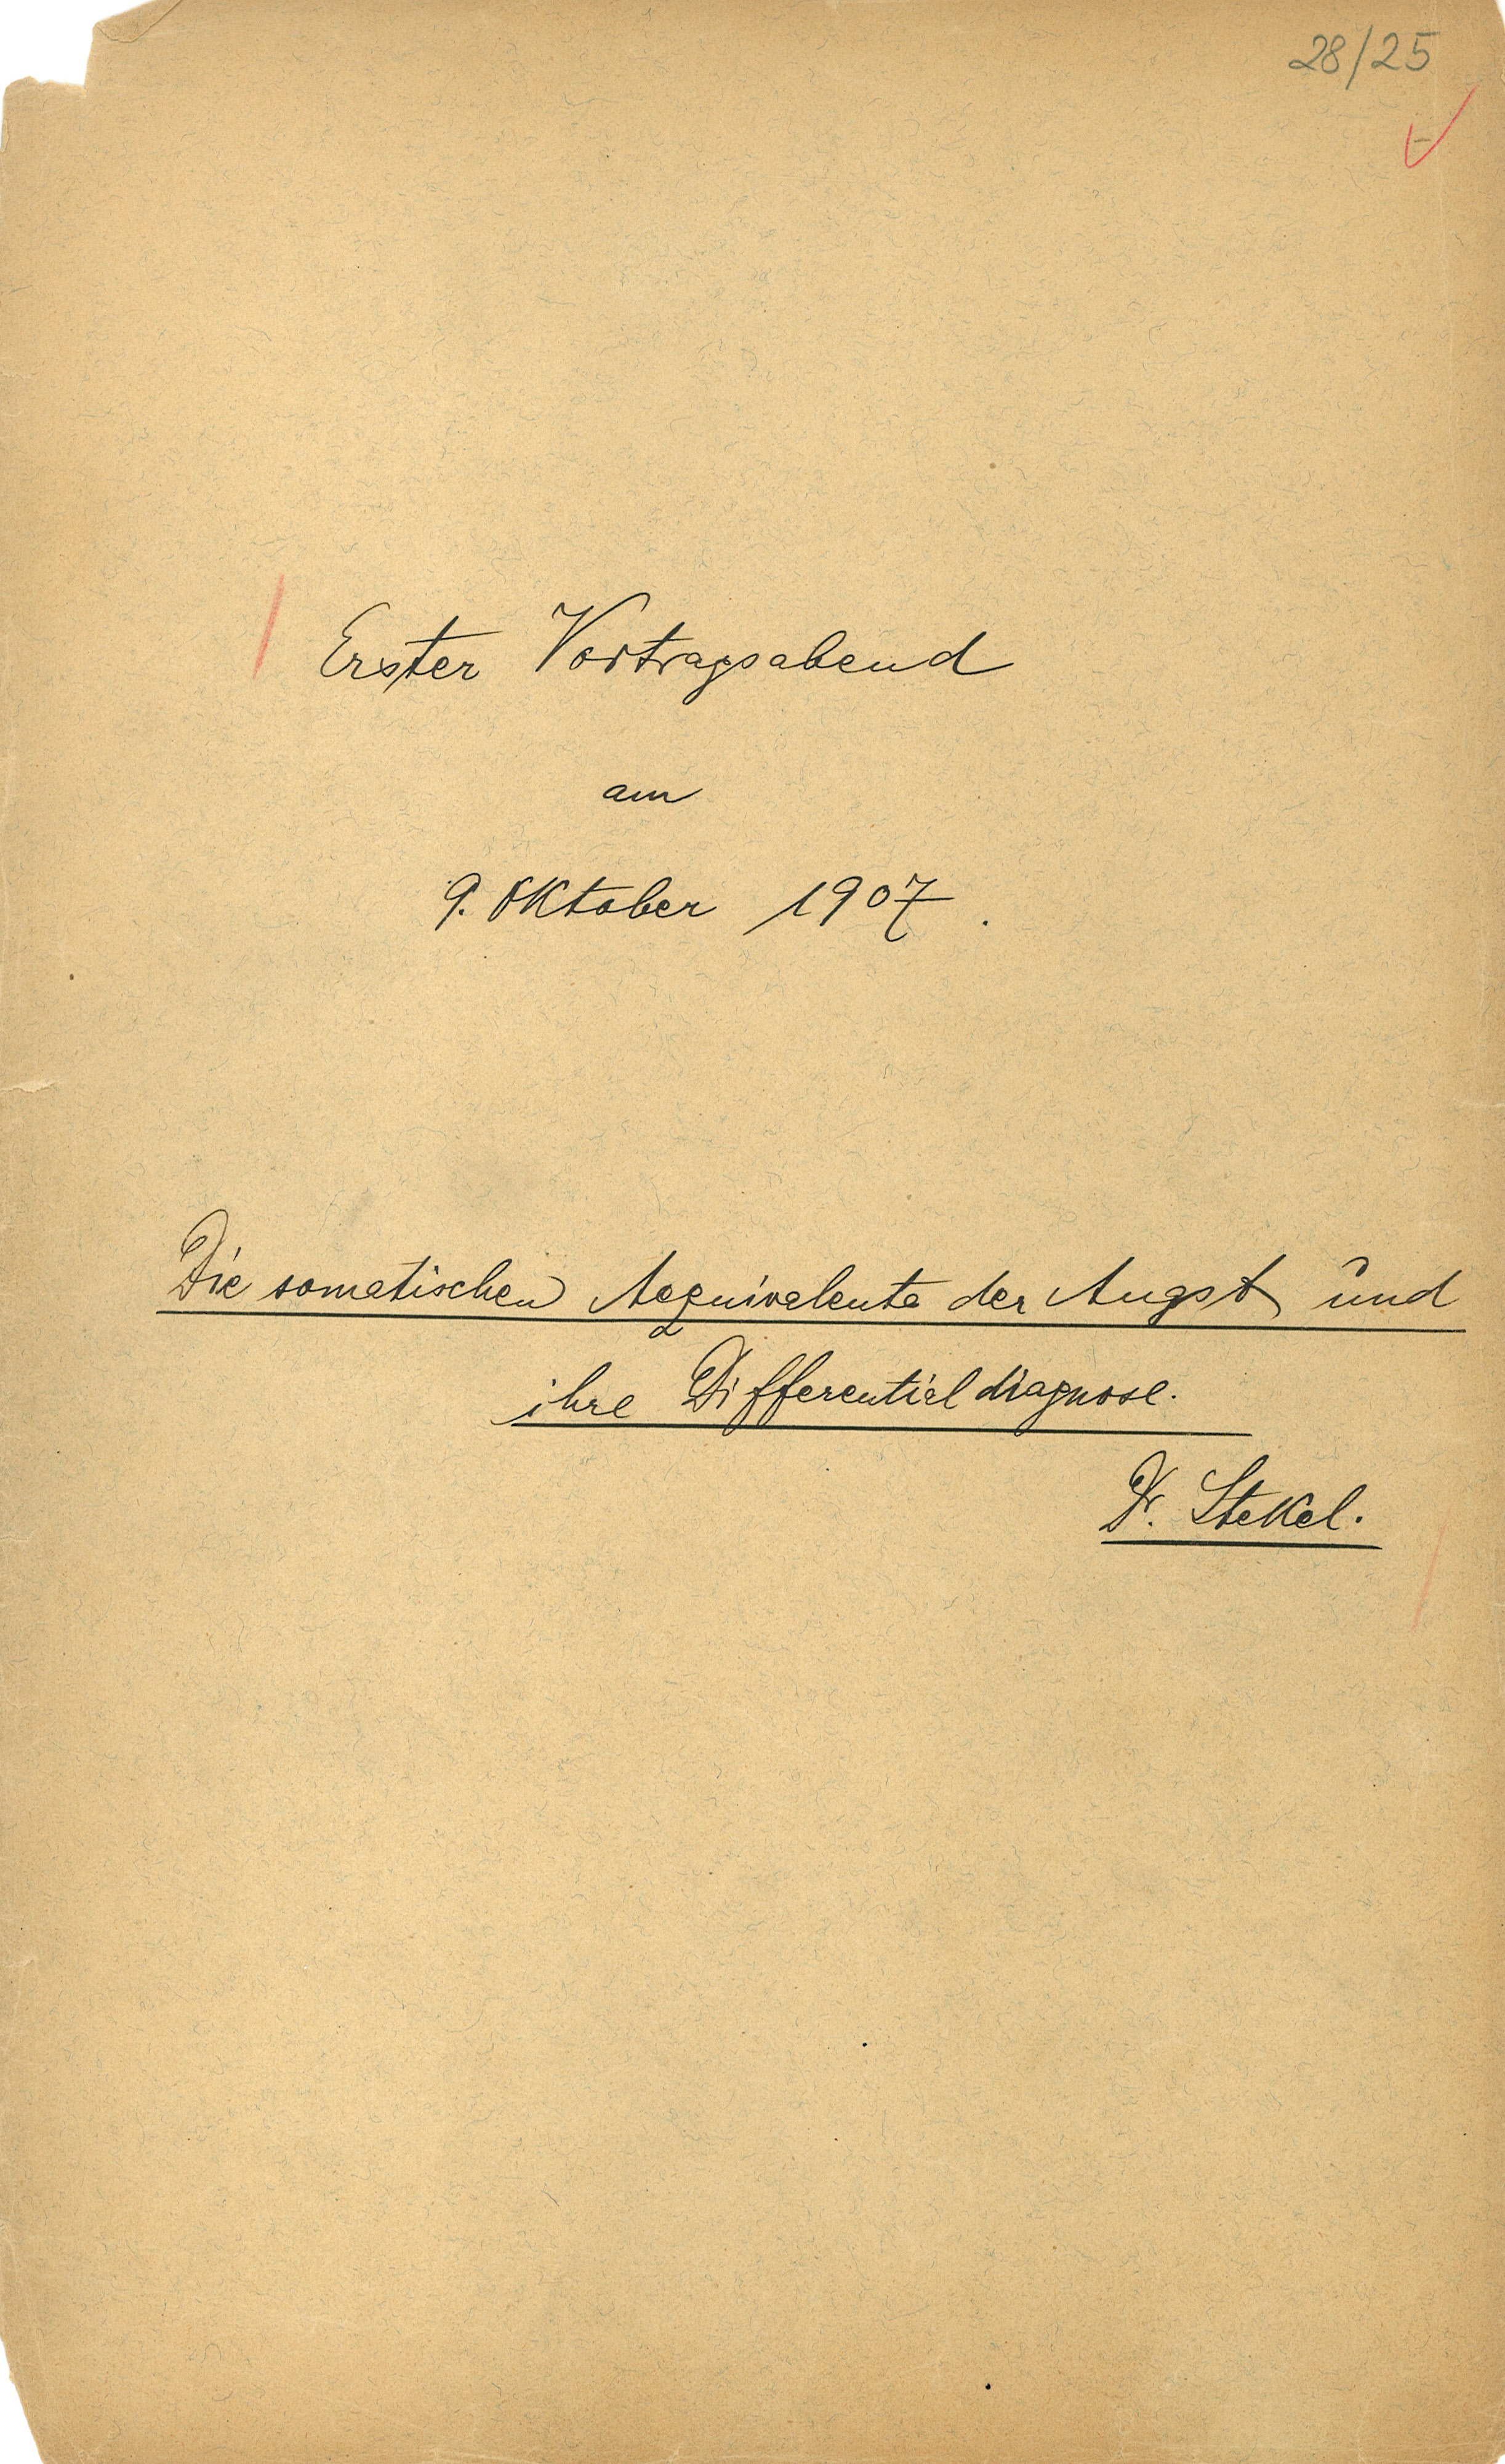 28/25
Erster Vortragsabend
am
9. Oktober 1907.
Die somatischen Aequivalente der Angst und
ihre Differentialdiagnose.
Dr. Stekel.